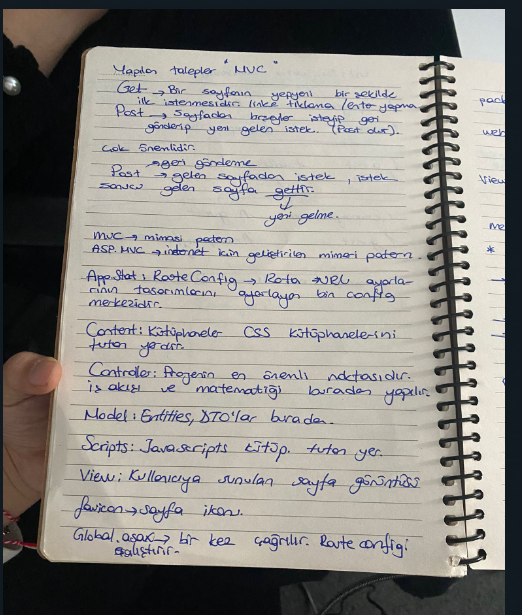 Yapılan talepler "MVC"
Get → Bir sayfanın yepyeni bir şekilde
ilk istenmesidir. linke tıklama / enter yapma
Post → sayfadan birşeyler isteyip geri
gönderip yeni gelen istek. (Post dur).
çok önemlidir.
→ geri gönderme
Post → gelen sayfadan istek, istek
sonucu gelen sayfa gettir.
↓
yeni gelme.
MVC → mimari patern
ASP. MVC → internet için geliştirilen mimari patern.
App.Start : RouteConfig → Rota URL ayarla-
rının tasarımlarını ayarlayan bin config
merkezidir.
Content : Kütüphaneler CSS kütüphanelerini
tutan yerdir.
Controller : Projenin en önemli noktasıdır.
iş akışı ve matematiği buradan yapılır.
Model : Entities, DTO'lar burada.
Scripts : Javascripts kütüp. tutan yer.
View : Kullanıcıya sunulan sayfa görüntüsü
favicon → sayfa ikonu.
Global.asax → bir kez çağrılır. Route configi
çalıştırır.
pack
web
View
me
*